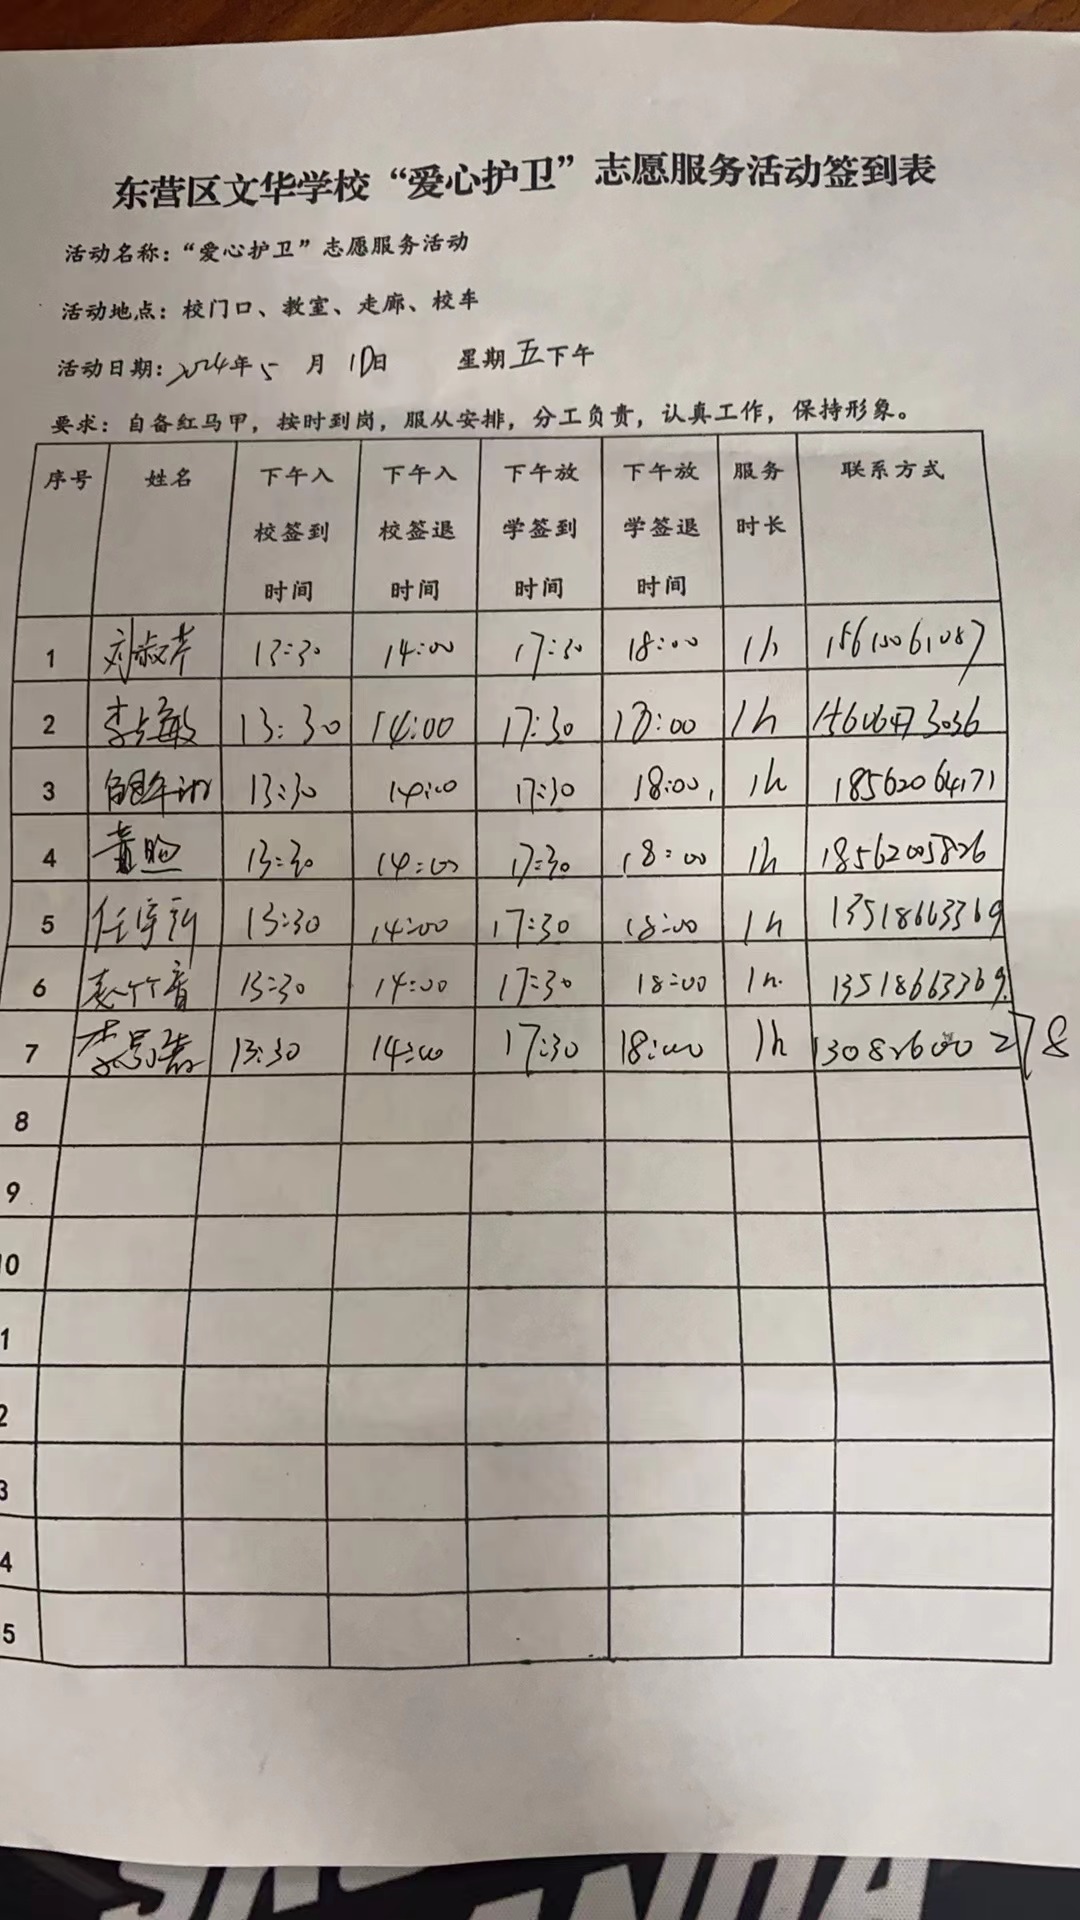 东营区文华学校“爱心护卫”志愿服务活动签到表
活动名称：“爱心护卫”志愿服务活动
活动地点：校门口、教室、走廊、校车
活动日期：2024年5月10日 星期五下午
要求：自备红马甲，按时到岗，服从安排，分工负责，认真工作，保持形象。
序号 姓名 下午入校签到时间 下午入校签退时间 下午放学签到时间 下午放学签退时间 服务时长 联系方式
1 刘淑芹 13:30 14:00 17:30 18:00 1h 15610061087
2 李 敏 13:30 14:00 17:30 18:00 1h 15606473036
3 13:30 14:00 17:30 18:00 1h 18562064171
4 黄 13:30 14:00 17:30 18:00 1h 18562005826
5 任 13:30 14:00 17:30 18:00 1h 13518663369
6 袁竹音 13:30 14:00 17:30 18:00 1h 13518663369
7 李 13:30 14:00 17:30 18:00 1h 13082600278
8
9
10
1
2
3
4
5